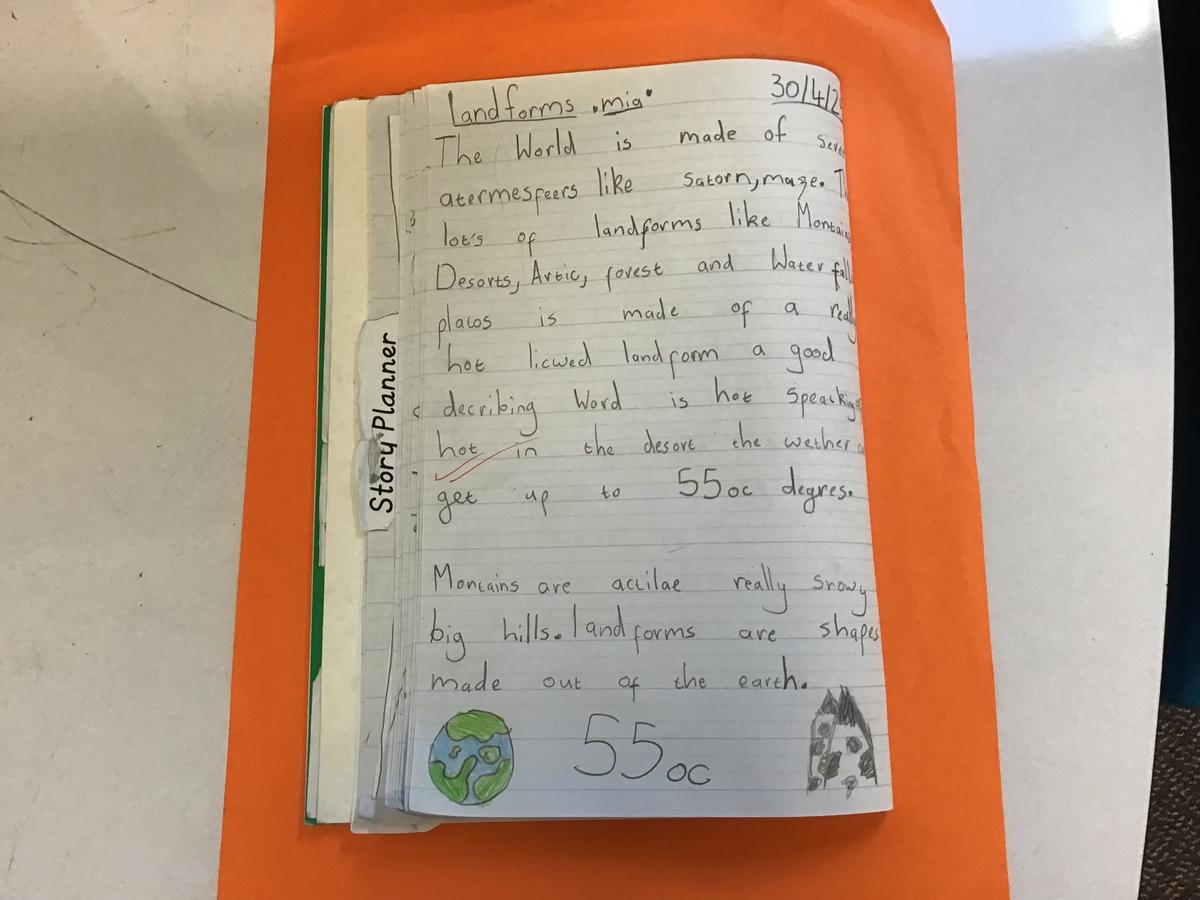 Landforms .mia.
30/4/2
The World is made of
atermesfeers like Satorn, maze.
lot's of landforms like Montains
Desorts, Artic, forest and Water fall
placos is made of a really
hot licwed landform a good
decribing Word is hot speacking
hot in the desort the wether
get up to 55oc degres.
Montains are actilae really snowy
big hills. landforms are shapes
made out of the earth.
55oc
Story Planner